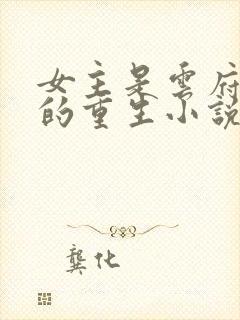 女主是雲府
的重生小說
龔化